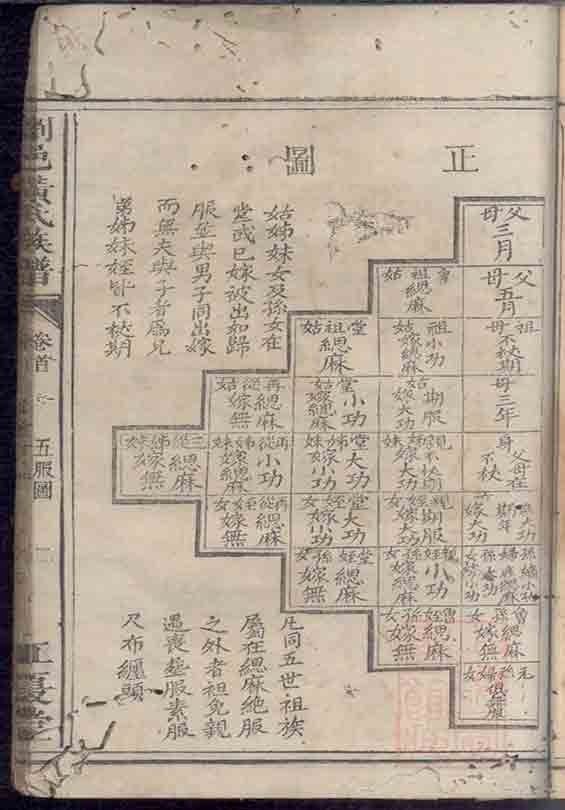 正圖
父母三月
父母五月
曾祖姑緦麻
祖母不杖期
祖姑小功嫁緦麻
堂祖姑緦麻
母三年
姑期服嫁大功
堂姑小功嫁緦麻
再從姑緦麻嫁無
身父母在不杖
親姊妹不杖期嫁大功
堂姊妹大功嫁小功
再從姊妹小功嫁緦麻
三從姊妹緦麻嫁無
親姪女期服嫁大功
堂姪女大功嫁小功
再從姪女緦麻嫁無
親姪孫女小功嫁緦麻
堂姪孫女緦麻嫁無
曾孫女緦麻嫁無
曾姪孫女緦麻嫁無
姑姊妹女及孫女在
堂或已嫁被出如歸
服並與男子同出嫁
而無夫與子者爲兄
弟姊妹姪皆不杖期
凡同五世祖族
屬在緦麻絶服
之外者袒免親
遇喪塟服素服
尺布纏頭
瀏邑黃氏族譜
卷首
五服圖